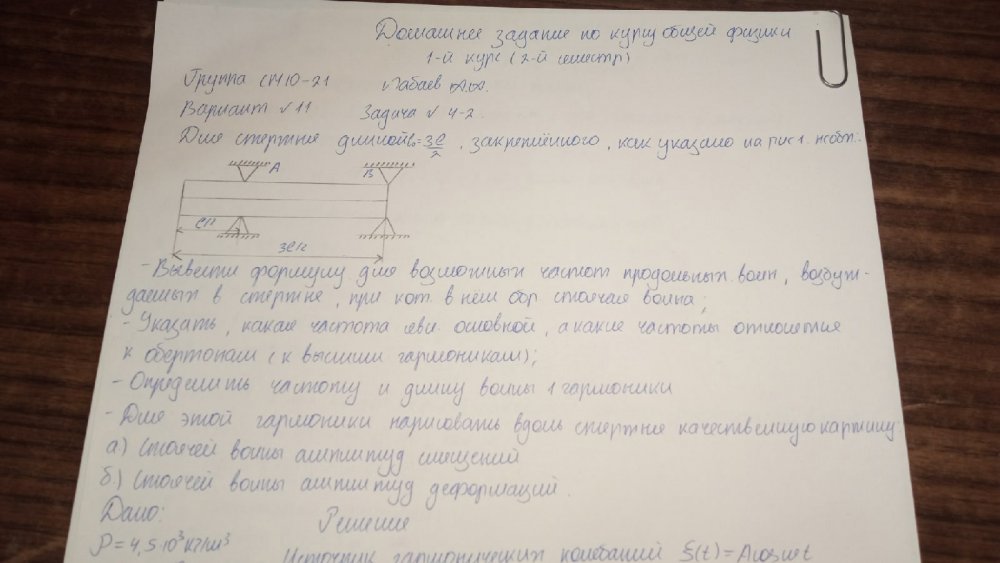 Домашнее задание по курсу общей физики
1-й курс (2-й семестр)
Группа СМ10-21 Лабаев А.А.
Вариант №11 Задача № 4-2.
Для стержня длиной l₀=3ℓ/2, закреплённого, как указано на рис 1. необх.:
A B
ℓ/2
3ℓ/2
- Вывести формулу для возможных частот продольных волн, возбуж-
даемых в стержне, при кот. в нём обр. стоячая волна;
- Указать, какая частота явл. основной, а какие частоты относятся
к обертонам (к высшим гармоникам);
- Определить частоту и длину волны 1 гармоники
- Для этой гармоники нарисовать вдоль стержня качественную картину:
а) Стоячей волны амплитуд смещений
б) Стоячей волны амплитуд деформаций.
Дано: Решение
ρ = 4,5·10³ кг/м³
Источник гармонических колебаний ξ(t) = Acosωt